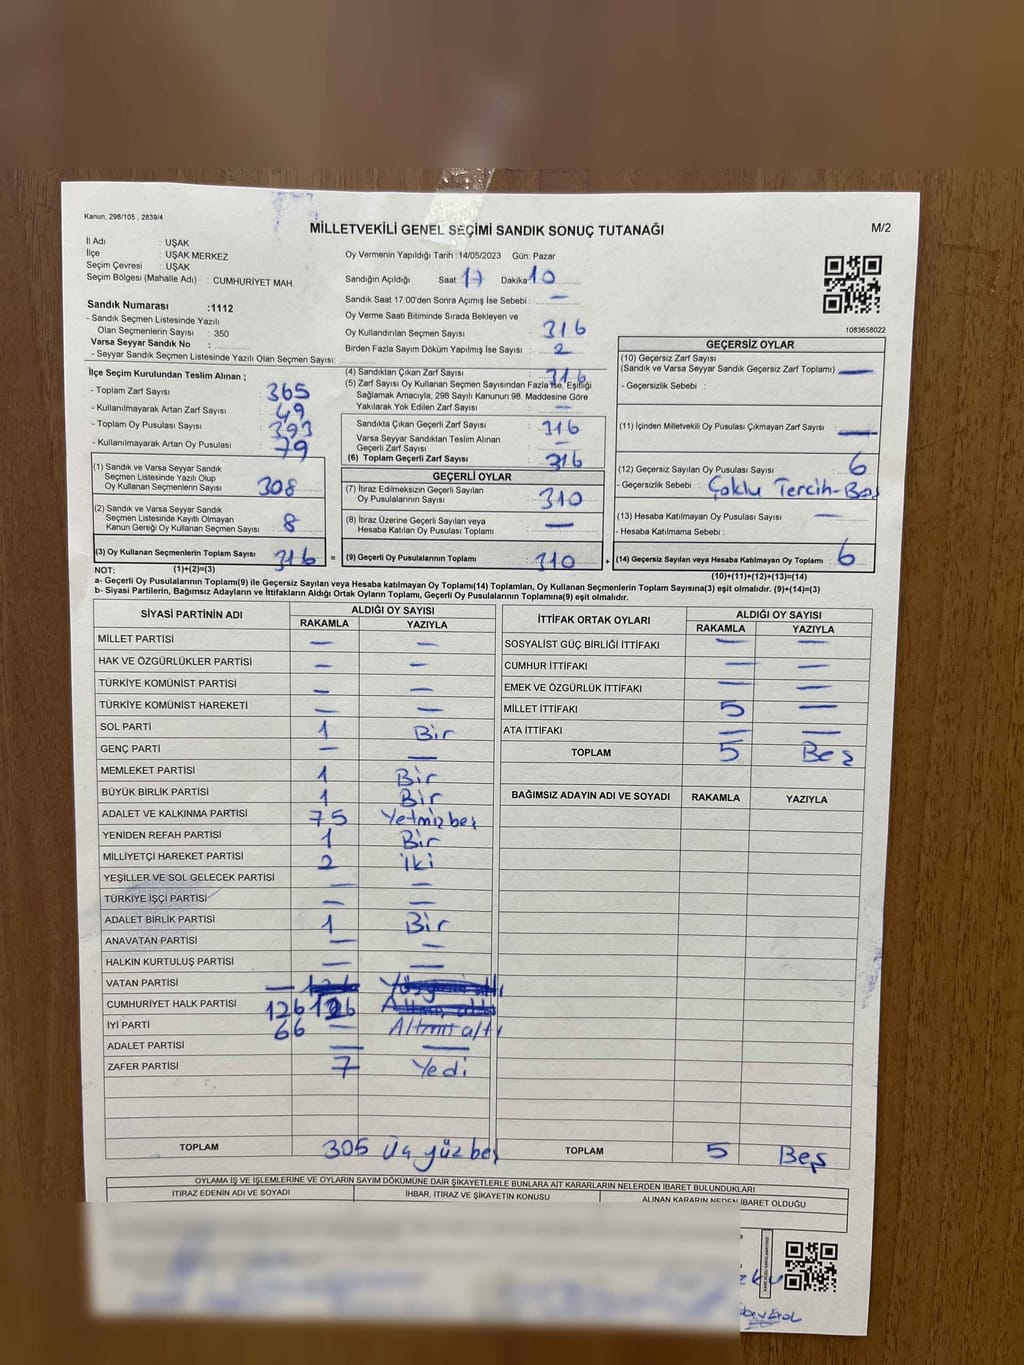 Kanun; 298/105 , 2839/4
MİLLETVEKİLİ GENEL SEÇİMİ SANDIK SONUÇ TUTANAĞI
M/2
İl Adı : UŞAK
İlçe : UŞAK MERKEZ
Seçim Çevresi : UŞAK
Seçim Bölgesi (Mahalle Adı) : CUMHURİYET MAH.
Sandık Numarası :1112
- Sandık Seçmen Listesinde Yazılı
Olan Seçmenlerin Sayısı : 350
Varsa Seyyar Sandık No :
- Seyyar Sandık Seçmen Listesinde Yazılı Olan Seçmen Sayısı:
Oy Vermenin Yapıldığı Tarih :14/05/2023 Gün: Pazar
Sandığın Açıldığı Saat 17 Dakika 10
Sandık Saat 17:00'den Sonra Açımış İse Sebebi : —
Oy Verme Saati Bitiminde Sırada Bekleyen ve
Oy Kullandırılan Seçmen Sayısı : 316
Birden Fazla Sayım Döküm Yapılmış İse Sayısı : 2
1083658022
İlçe Seçim Kurulundan Teslim Alınan ;
- Toplam Zarf Sayısı : 365
- Kullanılmayarak Artan Zarf Sayısı : 49
- Toplam Oy Pusulası : 393
- Kullanılmayarak Artan Oy Pusulası : 79
(1) Sandık ve Varsa Seyyar Sandık
Seçmen Listesinde Yazılı Olup
Oy Kullanan Seçmenlerin Sayısı : 308
(2) Sandık ve Varsa Seyyar Sandık
Seçmen Listesinde Kayıtlı Olmayan
Kanun Gereği Oy Kullanan Seçmen Sayısı : 8
(3) Oy Kullanan Seçmenlerin Toplam Sayısı : 316 =
(4) Sandıktan Çıkan Zarf Sayısı : 316
(5) Zarf Sayısı Oy Kullanan Seçmen Sayısından Fazla İse, Eşitliği
Sağlamak Amacıyla, 298 Sayılı Kanunun 98. Maddesine Göre
Yakılarak Yok Edilen Zarf Sayısı : —
Sandıkta Çıkan Geçerli Zarf Sayısı : 316
Varsa Seyyar Sandıktan Teslim Alınan
Geçerli Zarf Sayısı : —
(6) Toplam Geçerli Zarf Sayısı : 316
GEÇERLİ OYLAR
(7) İtiraz Edilmeksizin Geçerli Sayılan
Oy Pusulalarının Sayısı : 310
(8) İtiraz Üzerine Geçerli Sayılan veya
Hesaba Katılan Oy Pusulası Toplamı : —
(9) Geçerli Oy Pusulalarının Toplamı : 310 +
GEÇERSİZ OYLAR
(10) Geçersiz Zarf Sayısı
(Sandık ve Varsa Seyyar Sandık Geçersiz Zarf Toplamı) : —
- Geçersizlik Sebebi :
(11) İçinden Milletvekili Oy Pusulası Çıkmayan Zarf Sayısı : —
(12) Geçersiz Sayılan Oy Pusulası Sayısı : 6
- Geçersizlik Sebebi : Çoklu Tercih-Boş
(13) Hesaba Katılmayan Oy Pusulası Sayısı : —
- Hesaba Katılmama Sebebi :
(14) Geçersiz Sayılan veya Hesaba Katılmayan Oy Toplamı : 6
NOT: (1)+(2)=(3)
(10)+(11)+(12)+(13)=(14)
a- Geçerli Oy Pusulalarının Toplamı(9) ile Geçersiz Sayılan veya Hesaba katılmayan Oy Toplamı(14) Toplamları, Oy Kullanan Seçmenlerin Toplam Sayısına(3) eşit olmalıdır. (9)+(14)=(3)
b- Siyasi Partilerin, Bağımsız Adayların ve İttifakların Aldığı Ortak Oyların Toplamı, Geçerli Oy Pusulalarının Toplamına(9) eşit olmalıdır.
SİYASİ PARTİNİN ADI ALDIĞI OY SAYISI
RAKAMLA YAZIYLA
MİLLET PARTİSİ — —
HAK VE ÖZGÜRLÜKLER PARTİSİ — —
TÜRKİYE KOMÜNİST PARTİSİ — —
TÜRKİYE KOMÜNİST HAREKETİ — —
SOL PARTİ 1 Bir
GENÇ PARTİ — —
MEMLEKET PARTİSİ 1 Bir
BÜYÜK BİRLİK PARTİSİ 1 Bir
ADALET VE KALKINMA PARTİSİ 75 Yetmişbeş
YENİDEN REFAH PARTİSİ 1 Bir
MİLLİYETÇİ HAREKET PARTİSİ 2 iki
YEŞİLLER VE SOL GELECEK PARTİSİ — —
TÜRKİYE İŞÇİ PARTİSİ — —
ADALET BİRLİK PARTİSİ 1 Bir
ANAVATAN PARTİSİ — —
HALKIN KURTULUŞ PARTİSİ — —
VATAN PARTİSİ —
CUMHURİYET HALK PARTİSİ 126 126
İYİ PARTİ 66 — Altmışaltı
ADALET PARTİSİ — —
ZAFER PARTİSİ 7 Yedi
TOPLAM 305 Üç yüz beş
İTTİFAK ORTAK OYLARI ALDIĞI OY SAYISI
RAKAMLA YAZIYLA
SOSYALİST GÜÇ BİRLİĞİ İTTİFAKI — —
CUMHUR İTTİFAKI — —
EMEK VE ÖZGÜRLÜK İTTİFAKI — —
MİLLET İTTİFAKI 5 —
ATA İTTİFAKI — —
TOPLAM 5 Beş
BAĞIMSIZ ADAYIN ADI VE SOYADI RAKAMLA YAZIYLA
TOPLAM 5 Beş
OYLAMA İŞ VE İŞLEMLERİNE VE OYLARIN SAYIM DÖKÜMÜNE DAİR ŞİKAYETLERLE BUNLARA AİT KARARLARIN NELERDEN İBARET BULUNDUKLARI
İTİRAZ EDENİN ADI VE SOYADI İHBAR, İTİRAZ VE ŞİKAYETİN KONUSU ALINAN KARARIN NEDEN İBARET OLDUĞU